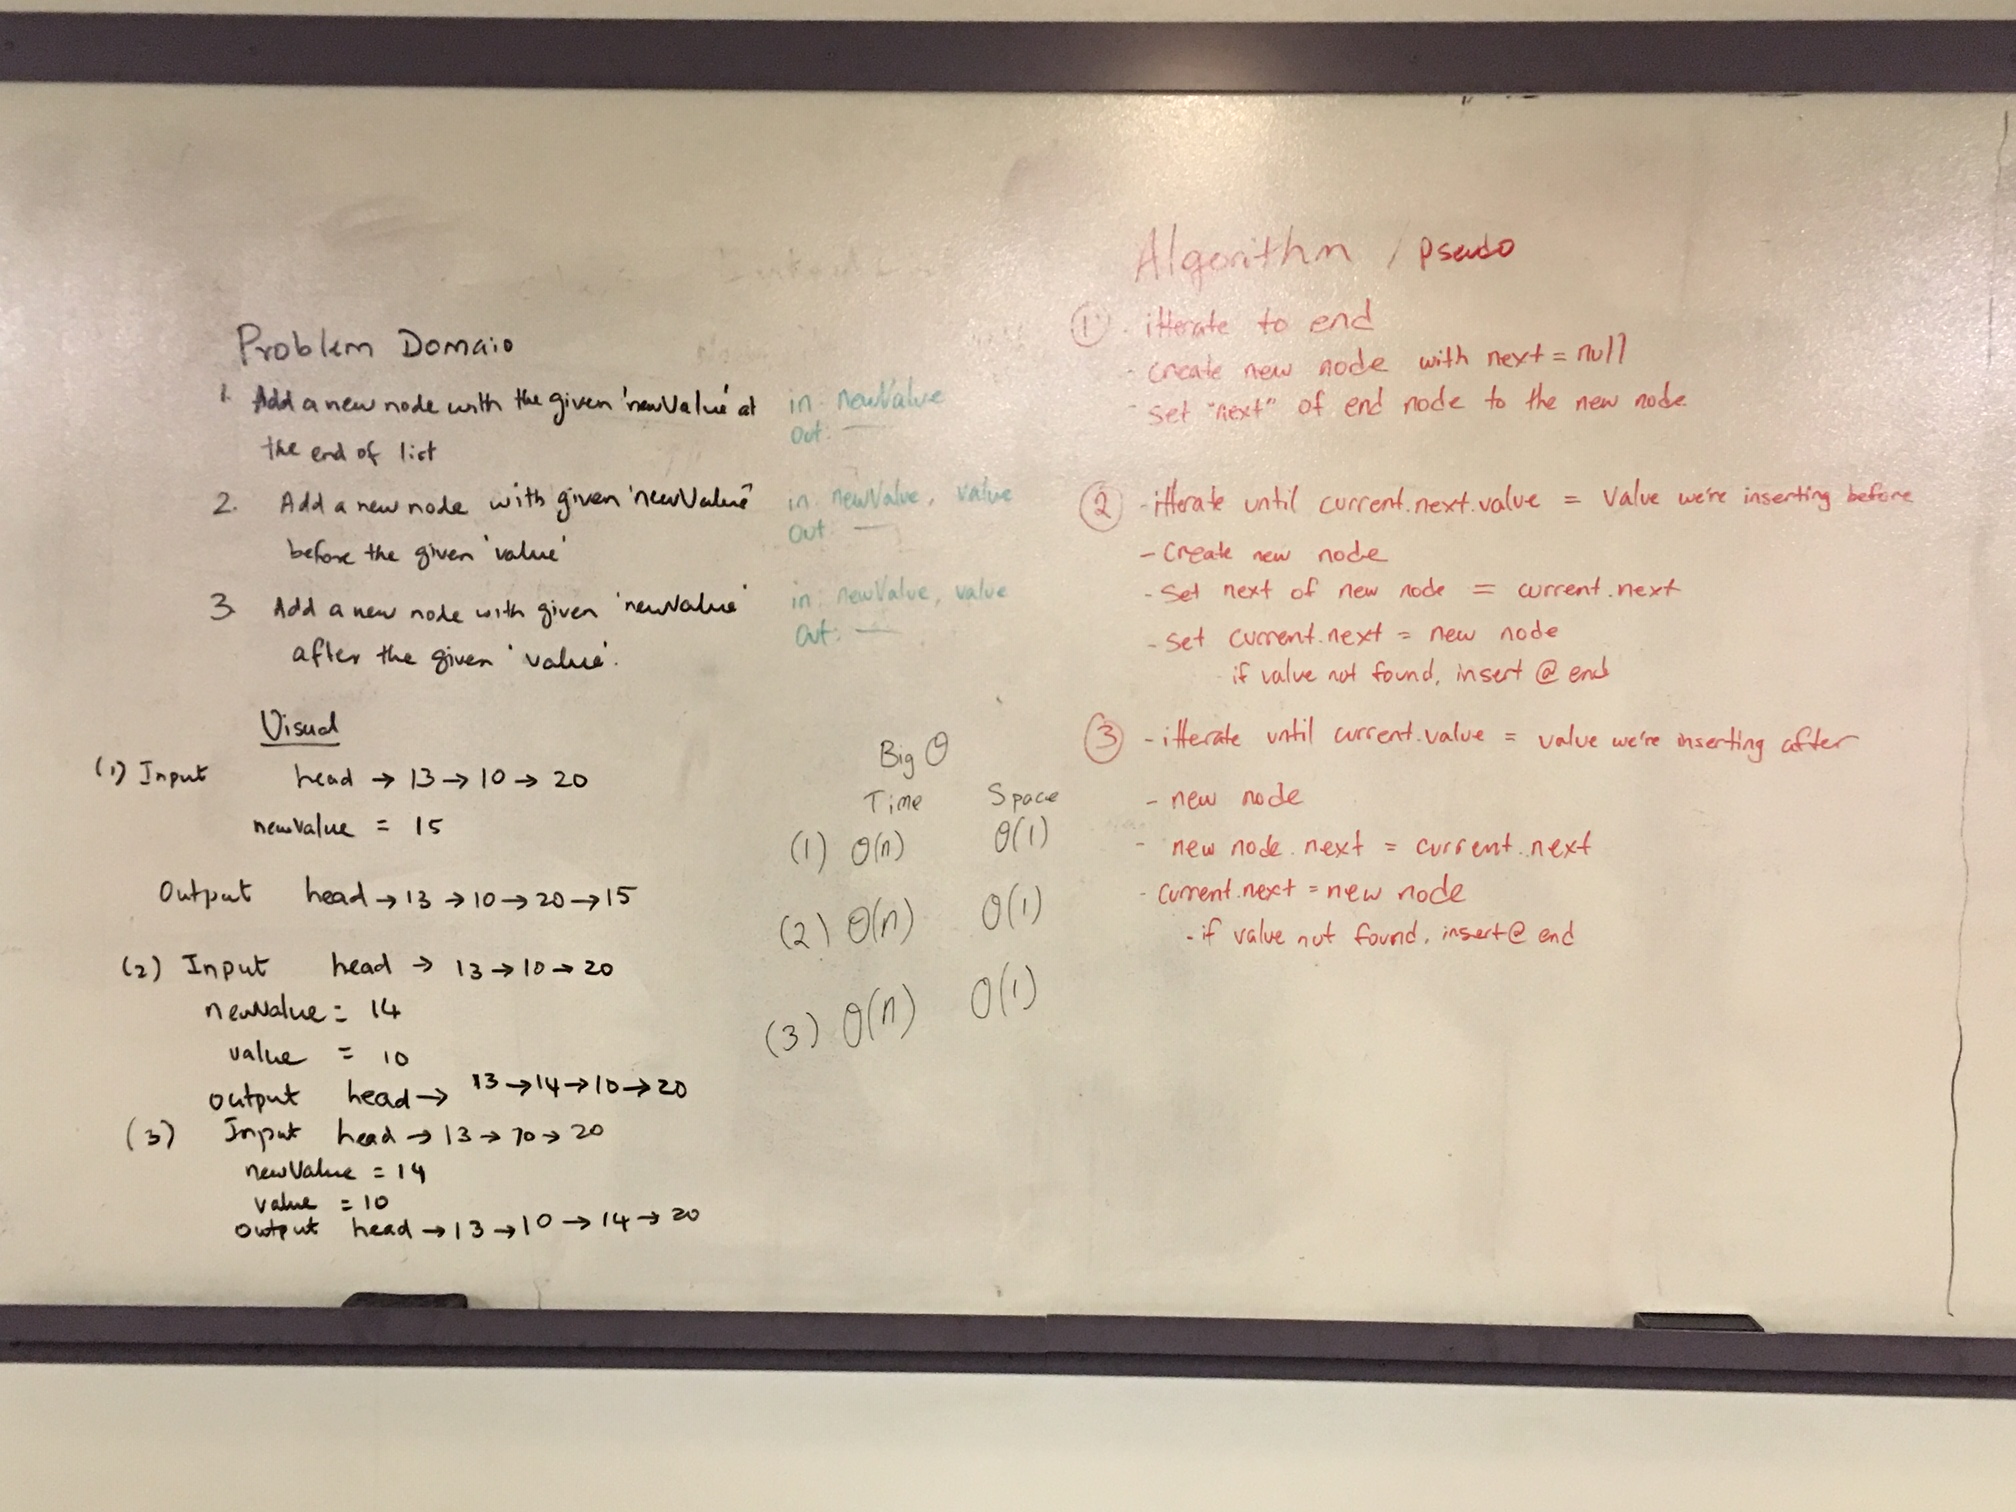 Problem Domain
1. Add a new node with the given 'newValue' at
the end of list
in: newValue
Out: —
2. Add a new node with given 'newValue'
before the given 'value'
in: newValue, value
Out: —
3. Add a new node with given 'newValue'
after the given 'value'.
in: newValue, value
Out: —
Visual
(1) Input head → 13 → 10 → 20
newValue = 15
Output head → 13 → 10 → 20 → 15
(2) Input head → 13 → 10 → 20
newValue = 14
value = 10
output head → 13 → 14 → 10 → 20
(3) Input head → 13 → 10 → 20
newValue = 14
value = 10
output head → 13 → 10 → 14 → 20
Big O
Time Space
(1) O(n) O(1)
(2) O(n) O(1)
(3) O(n) O(1)
Algorithm / pseudo
① - itterate to end
- create new node with next = null
- set "next" of end node to the new node
② - itterate until current.next.value = value we're inserting before
- Create new node
- Set next of new node = current.next
- set current.next = new node
if value not found, insert @ end
③ - itterate until current.value = value we're inserting after
- new node
- new node.next = current.next
- current.next = new node
- if value not found, insert @ end